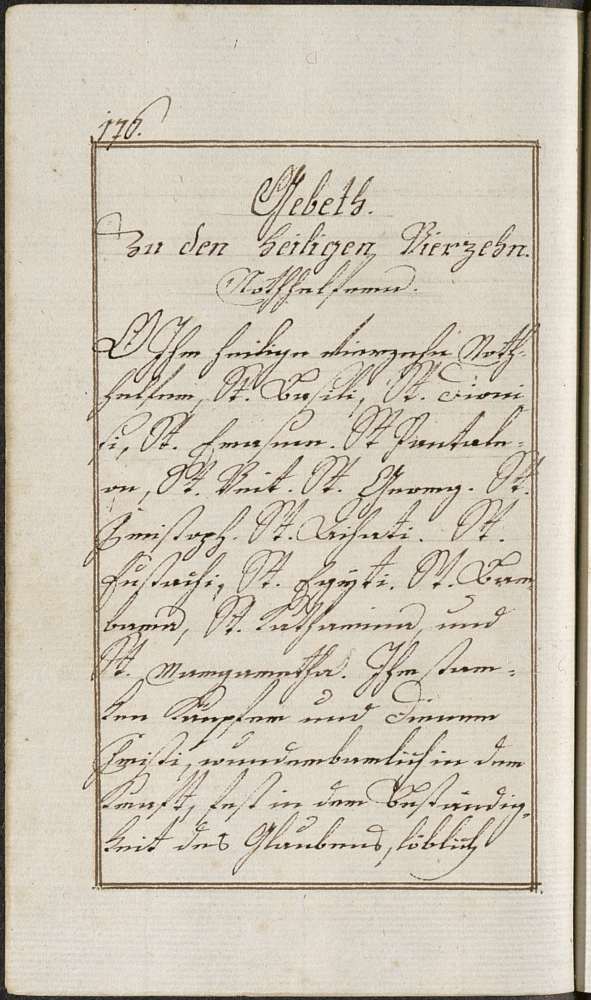 176.
Gebeth.
Zu den heiligen Vierzehn.
Nothhelfern.
O Ihr heilige vierzehn Noth-
helfer, St. Basili, St. Dioni
si, St. Erasme. St Pantale-
on, St. Veit. St. Georg. St.
Christoph. St. Achati. St.
Eustachi, St. Egÿti. St. Bar-
bara, St. Katharina, und
St. Margaretha. Ihr star-
ken Kämpfer und Diener
Christi, wunderbarlich in der
Kraft, fest in der Beständig-
keit des Glaubens, löblich